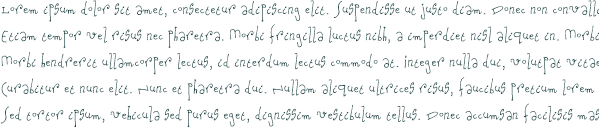 Lorem ipsum dolor sit amet, consectetur adipiscing elit. Suspendisse ut justo diam. Donec non convall
Etiam tempor vel risus nec pharetra. Morbi fringilla luctus nibh, a imperdiet nisl aliquet in. Morbi
Morbi hendrerit ullamcorper lectus, id interdum lectus commodo at. Integer nulla dui, volutpat vitae
Curabitur et nunc elit. Nunc et pharetra dui. Nullam aliquet ultrices risus, faucibus pretium lorem
Sed tortor ipsum, vehicula sed purus eget, dignissim vestibulum tellus. Donec accumsan facilisis mas